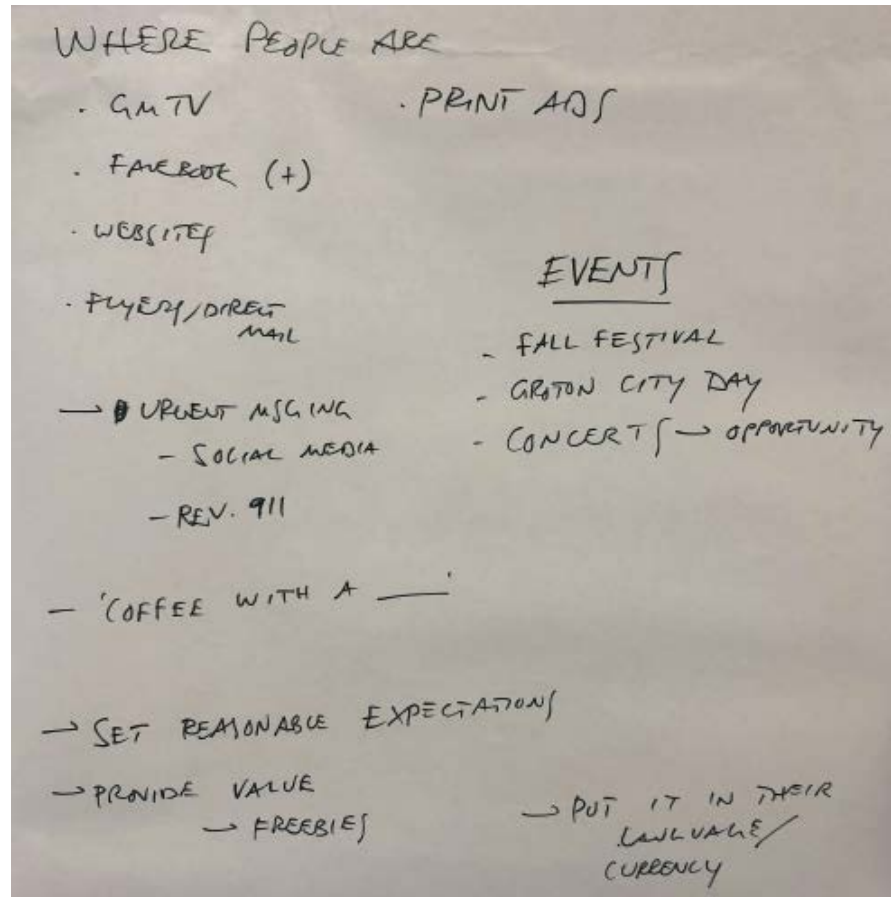 WHERE PEOPLE ARE
· GMTV
· PRINT ADS
· FACEBOOK (+)
· WEBSITES
· FLYERS/DIRECT
MAIL
→ URGENT MSGING
- SOCIAL MEDIA
- REV. 911
- 'COFFEE WITH A ___'
EVENTS
- FALL FESTIVAL
- GROTON CITY DAY
- CONCERTS → OPPORTUNITY
→ SET REASONABLE EXPECTATIONS
→ PROVIDE VALUE
→ FREEBIES
→ PUT IT IN THEIR
LANGUAGE/
CURRENCY